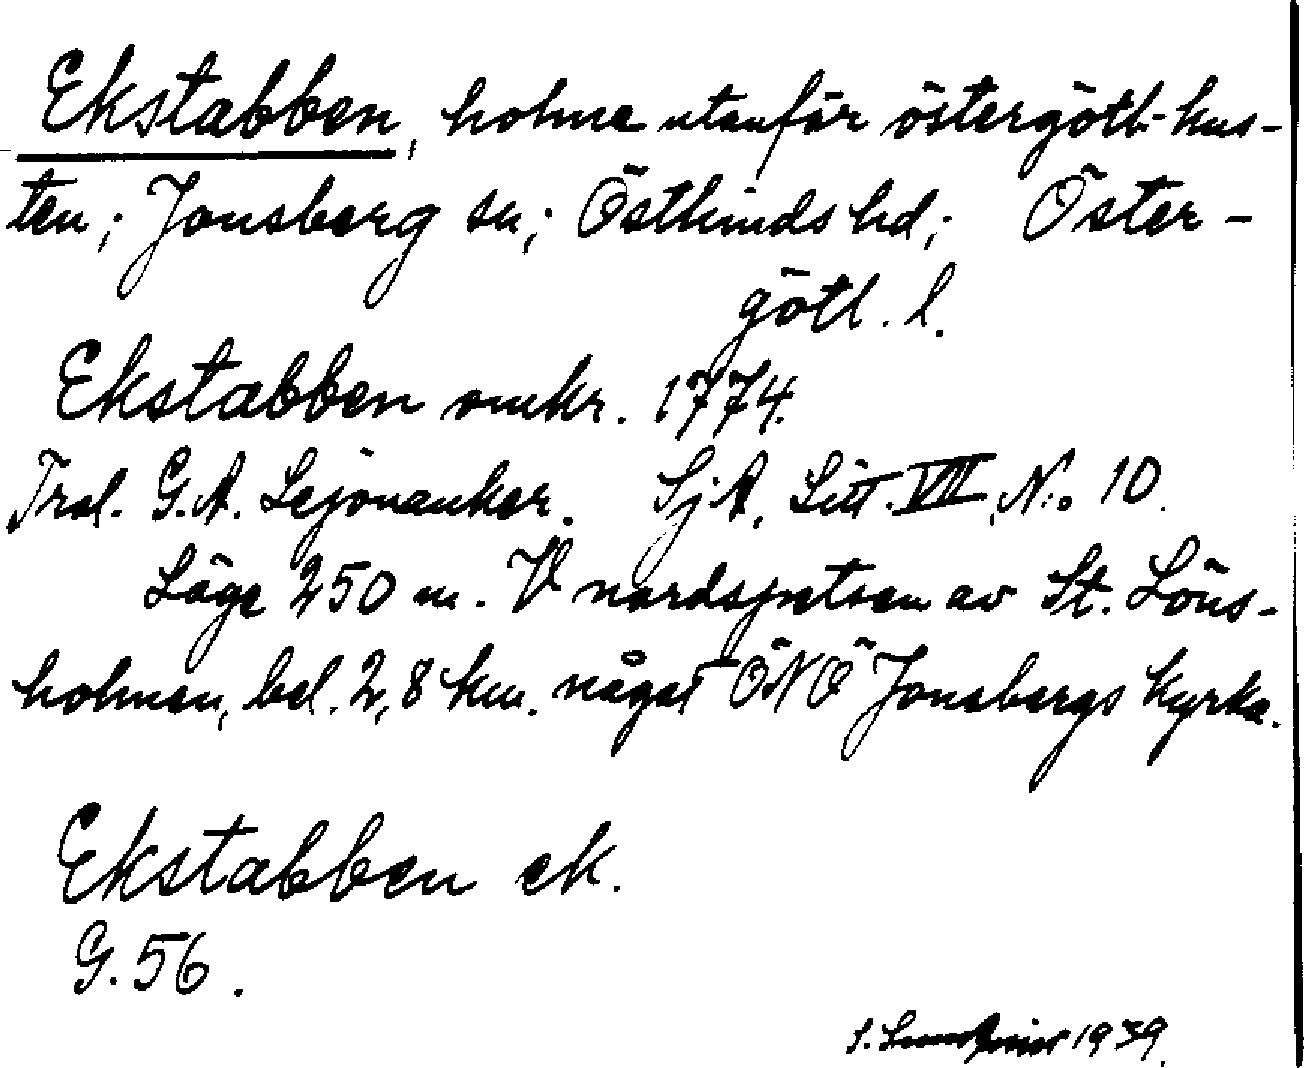 Ekstabben, holme utanför östergötl. kus-
ten; Jonsberg sn; Östkinds hd; Öster-
götl. l.
Ekstabben omkr. 1774.
Trol. G. A. Lejonanker. SjA, Litt. VII, N:o 10.
Läge 250 m. V nordspetsen av St. Löns-
holmen, bel. 2,8 km. något ÖNÖ Jonsbergs kyrka.
Ekstabben ek.
G. 56.
S. 1939.